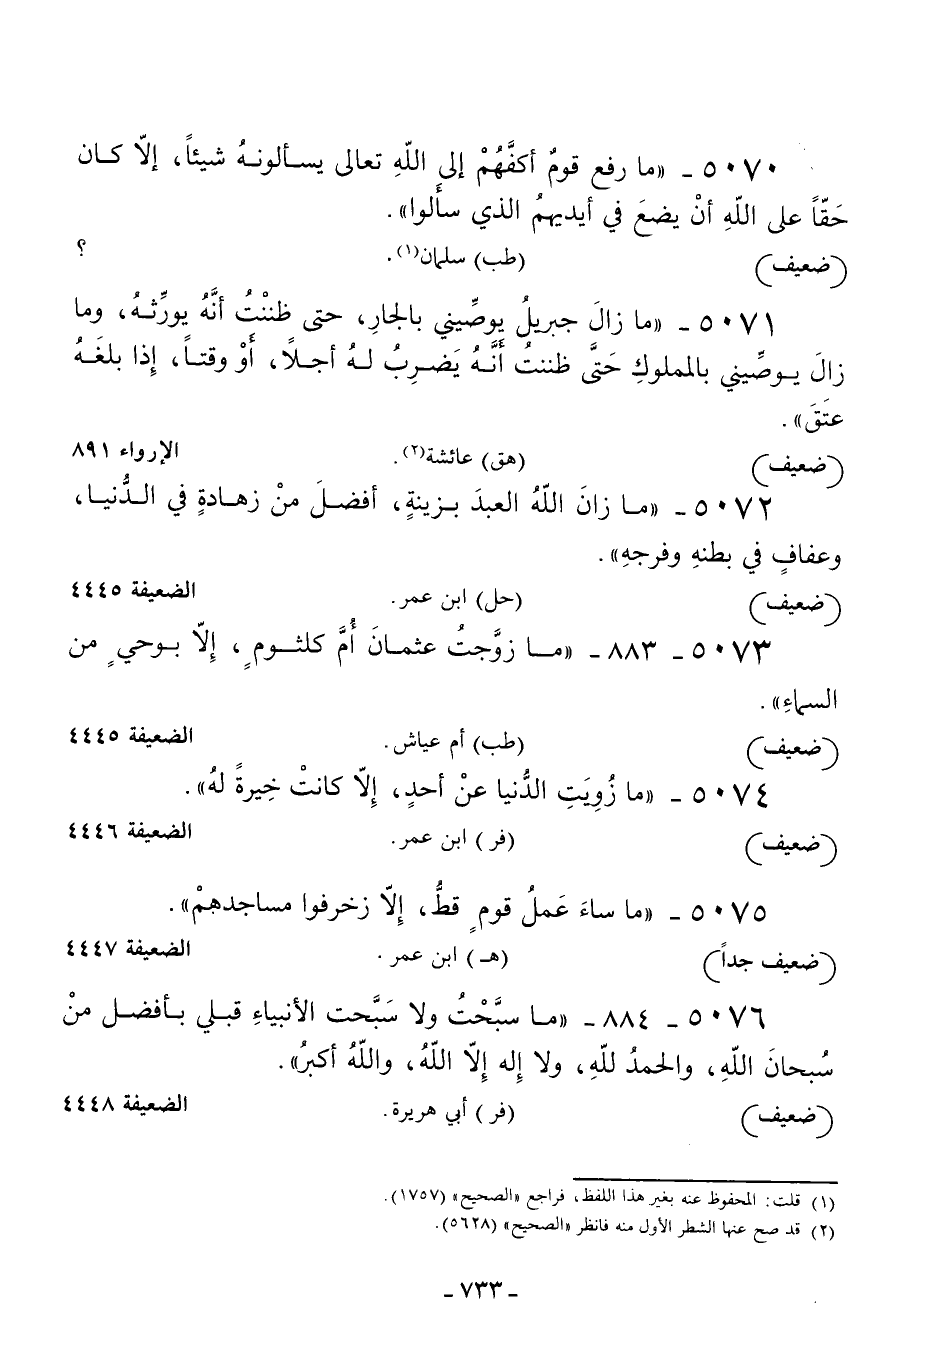 ٥٠٧٠ ـ «ما رفع قومٌ أكفَّهُمْ إلى اللّهِ تعالى يسألونهُ شيئاً، إلّا كان
حَقّاً على اللّهِ أنْ يضعَ في أيديهمُ الذي سألوا».
(ضعيف) (طب) سلمان(١). ؟
٥٠٧١ ـ «ما زالَ جبريلُ يوصِّيني بالجارِ، حتى ظننْتُ أنَّهُ يورِّثهُ، وما
زالَ يوصِّيني بالمملوكِ حَتَّى ظننتُ أنَّهُ يَضرِبُ لهُ أجلاً، أَوْ وقتاً، إِذا بلغَهُ
عتَقَ».
(ضعيف) (هق) عائشة(٢). الإرواء ٨٩١
٥٠٧٢ ـ «ما زانَ اللّهُ العبدَ بزينةٍ، أفضلَ منْ زهادةٍ في الدُّنيا،
وعفافٍ في بطنهِ وفرجهِ».
(ضعيف) (حل) ابن عمر. الضعيفة ٤٤٤٥
٥٠٧٣ ـ ٨٨٣ ـ «ما زوَّجتُ عثمانَ أُمَّ كلثومٍ، إِلّا بوحيٍ من
السماءِ».
(ضعيف) (طب) أم عياش. الضعيفة ٤٤٤٥
٥٠٧٤ ـ «ما زُويَتِ الدُّنيا عنْ أحدٍ، إِلّا كانتْ خِيرةً لهُ».
(ضعيف) (فر) ابن عمر. الضعيفة ٤٤٤٦
٥٠٧٥ ـ «ما ساءَ عَملُ قومٍ قطُّ، إِلّا زخرفوا مساجدهمْ».
(ضعيف جداً) (هـ) ابن عمر. الضعيفة ٤٤٤٧
٥٠٧٦ ـ ٨٨٤ ـ «ما سبَّحْتُ ولا سَبَّحت الأنبياءِ قبلي بأفضل منْ
سُبحانَ اللّهِ، والحمدُ للّهِ، ولا إله إِلّا اللّهُ، واللّهُ أكبرُ».
(ضعيف) (فر) أبي هريرة. الضعيفة ٤٤٤٨
(١) قلت: المحفوظ عنه بغير هذا اللفظ، فراجع «الصحيح» (١٧٥٧).
(٢) قد صح عنها الشطر الأول منه فانظر «الصحيح» (٥٦٢٨).
ـ ٧٣٣ ـ